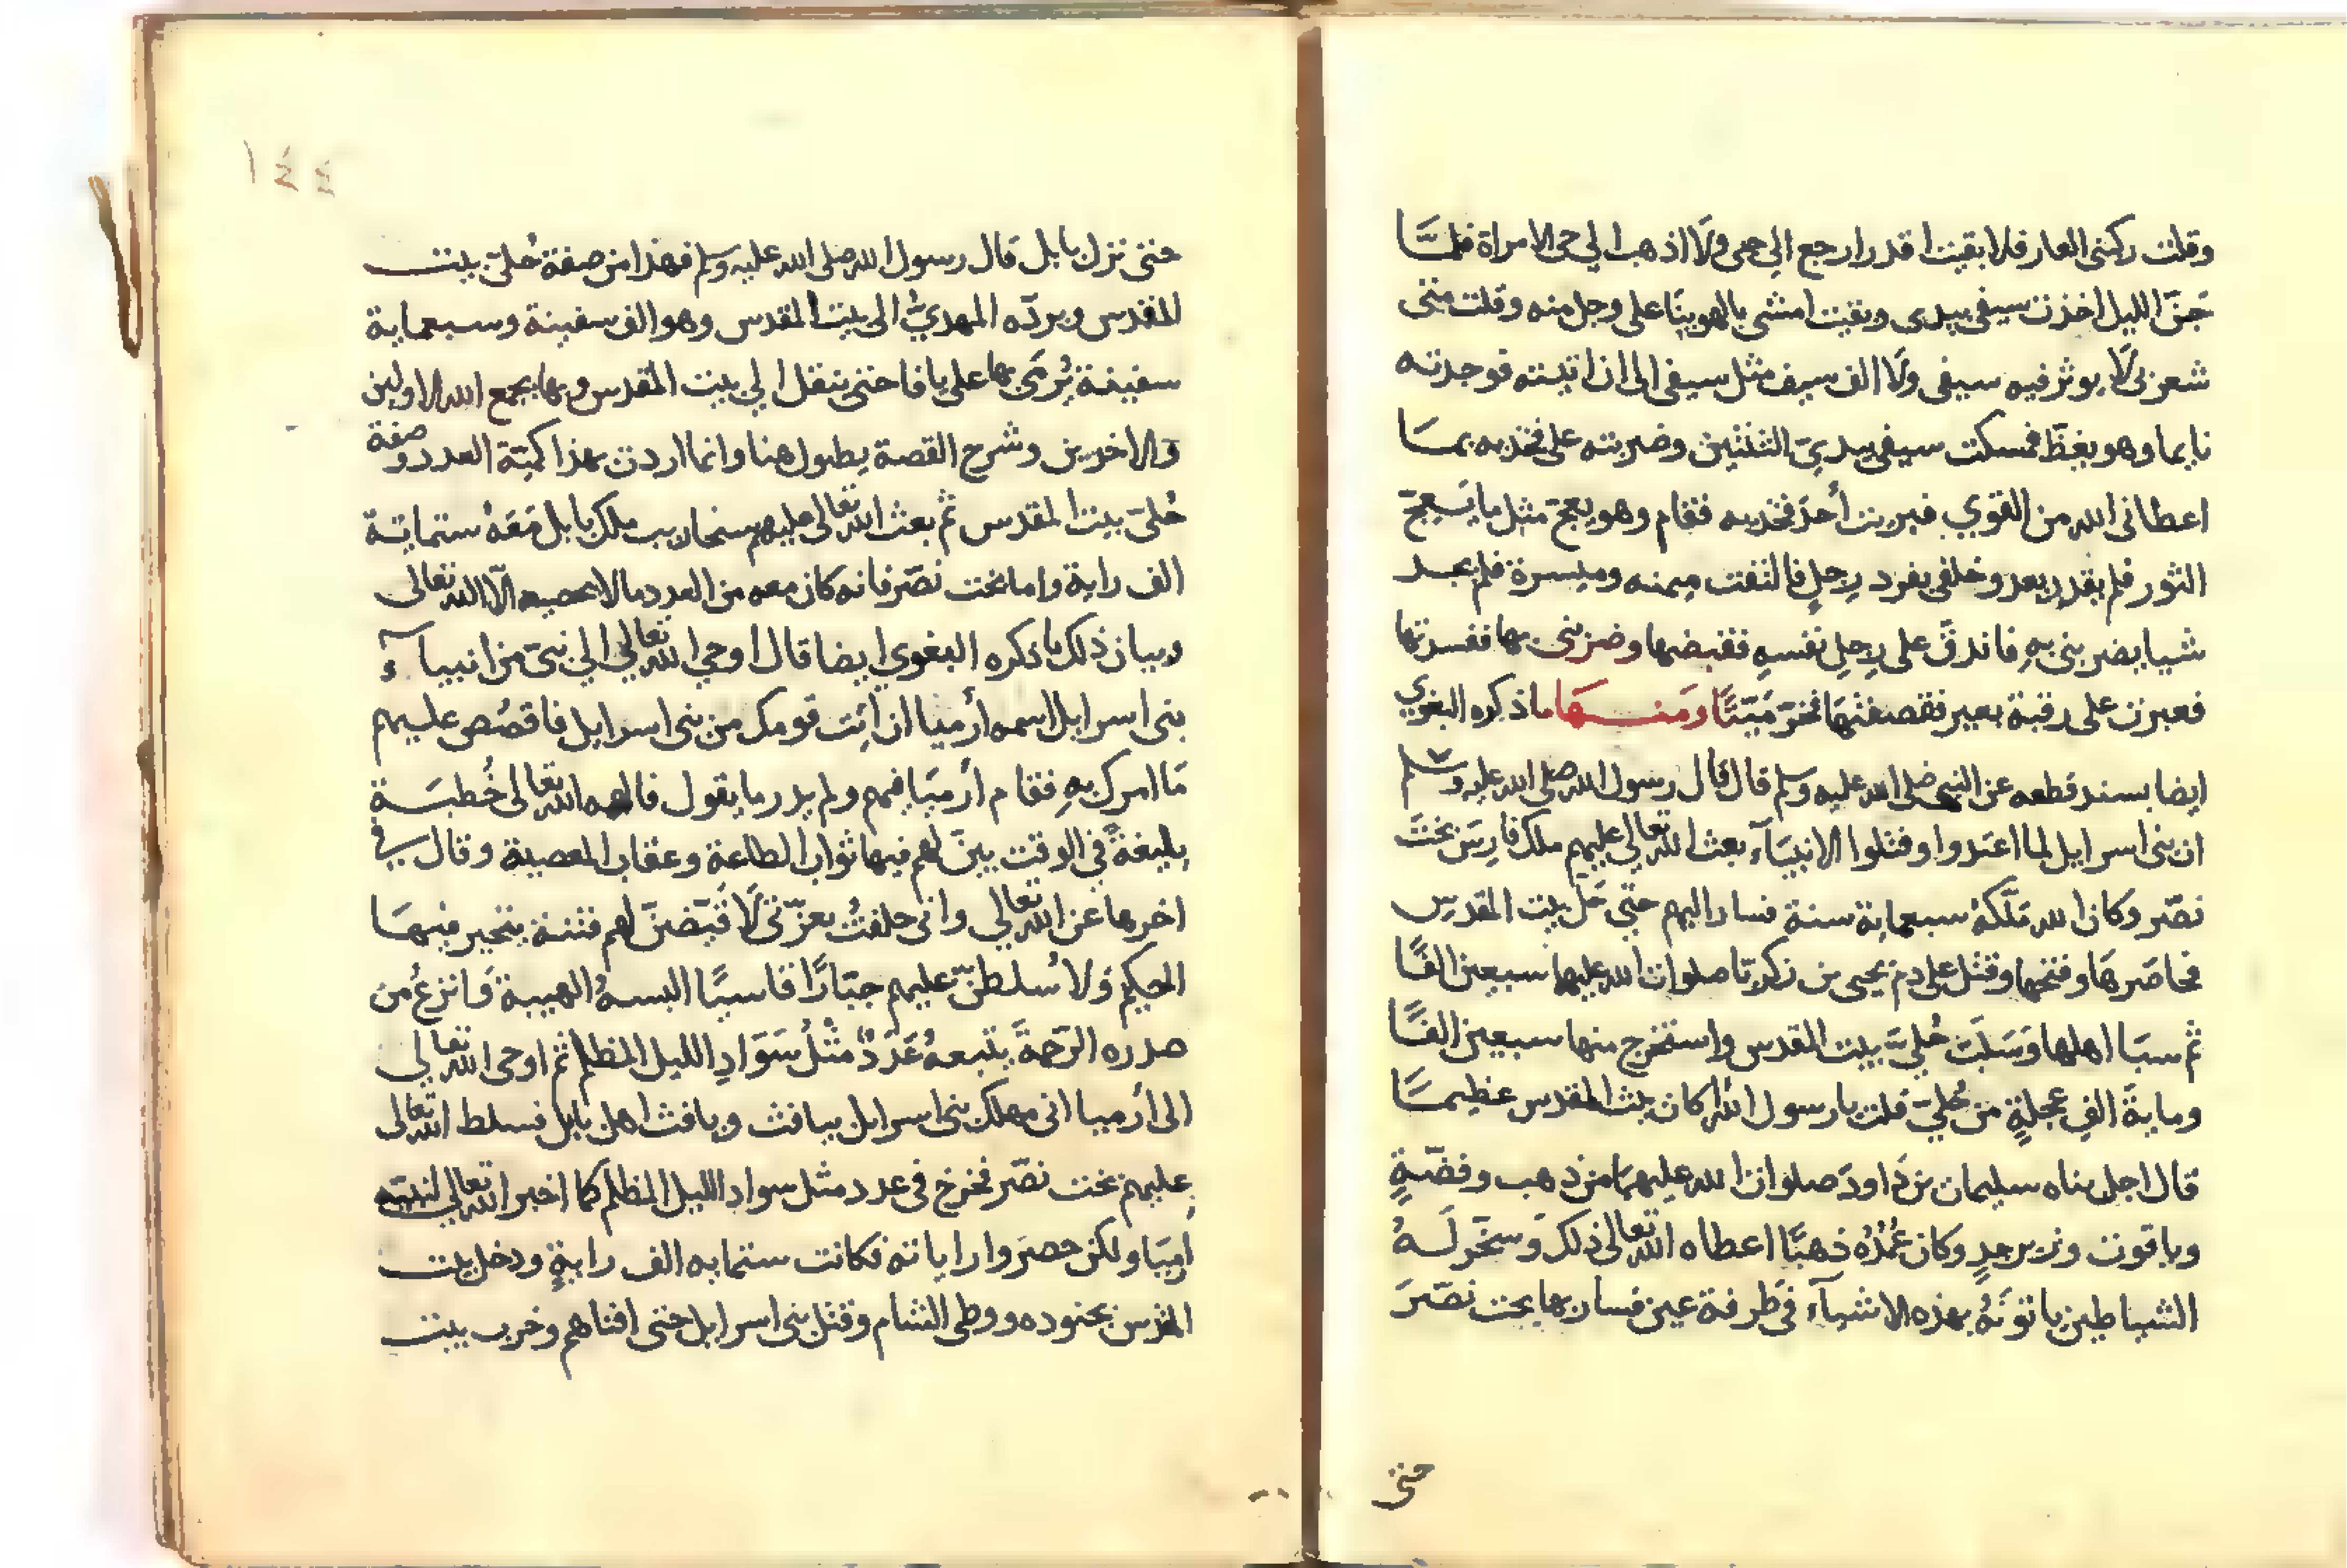 وقلت ركبنى العار فلا بقيت اقدر ارجع الي حى ولا اذهب الي حى الامراة فلمَّا
جَنَّ الليل اخذت سيفى بيدى وبقيت امشى بالهوينَا على وجل منه وقلت متى
شعر بى لَا يوثر فيه سيفى ولَا الف سيف مثل سيفى الى ان اتيته فوجدته
نايما وهو يغطّ فمسكت سيفى بيدىّ الثنتين وضربته على فخذيه بمَا
اعطانى الله من القوي فبريت أحَدَ فخديه فقام وهو يعجّ مثل ما يَعِجّ
الثور فلم يقدر يعدو خلفى بفرد رِجلٍ فالتفت ميمنه وميسرة فلم يجد
شيا يضربنى بهِ فاندقّ على رِجلِ نفسهِ فقبضها وضربنى بها ففسدتها
فعبرت على رقبة بعير فقصفتهَا فخرّ مَيّتًا ومنهَا ما ذكره البغوي
ايضا بسند قطعه عن النبى صلى الله عليه وسلم قال قال رسول الله صلى الله عليه وسلم
ان بنى اسرايل لما اعتدوا وقتلوا الانبيَآء بعث الله تعالي عليهم ملك فارِسَ بختَ
نصّر وكان الله مَلّكَهُ سبعماية سنة فسار اليهم حتّى حَلّ بيت المقدِس
فحاصَرهَا وفتحها وقتل على دم يحيى بن زكريّا صلوات الله عليهما سبعين الفًا
ثم سبَا اهلها وَسَلَبَ حُلِيَّ بيت المقدس واستخرج منها سبعين الفًا
ومايةَ الفِ عجلةٍ من حُليّ قلت يا رسول الله أكان بيت المقدس عظيمًا
قال اجل بناه سليمان بن دَاودَ صلوات الله عليهمَا من ذهب وفضّةٍ
وياقوت وزبرجدٍ وكان عُمُدُهُ ذهبًا اعطاه الله تعالى ذلك وَسخّر لَهُ
الشياطين ياتونَهُ بهذه الاشيآء فى طرفة عين فسار بها بخت نصّرَ
حتى
١٤٤
حتى نزل بابل قال رسول الله صلى الله عليه وسلم فهذا من صفة حُليّ بيت
المقدس ويردّه المهديُّ الى بيت المقدس وهو الف سفينة وسبعماية
سفينة يُرمَى بها على يافا حتى ينقل الي بيت المقدس وبها يجمع الله الاولين
والاخرين وشرح القصة يطول هنا وانما اردت بهذا كميّة العدد وصفة
حُليّ بيت المقدس ثم بعث الله تعالى عليهم سنحاريب ملك بابل مَعَهُ ستماية
الف راية واما بخت نصّر فانه كان معه من العدد ما لا يحصيه الّا الله تعالى
وبيان ذلك ما ذكره البغوي ايضا قال اوحي الله تعالي الي نبىّ من انبيآء
بنى اسرايل اسمه أرميا ان أئت قومك من بنى اسرايل فاقصُص عليهم
مَا امرك بهِ فقام أرميَا فيهم ولم يدر ما يقول فالهمه الله تعالى خُطبَة
بليغةً في الوقت بيّن لهم فيها ثواب الطاعة وعقاب المعصية وقال في
اخرها عن الله تعالي وانى حلفتُ بعزّتى لَاُقَيّضنّ لهم فتنة يتحير فيهَا
الحكيم وَلاُسلطنّ عليهم جبّارًا قاسيًا البسهُ الهيبة وَانزعُ من
صدره الرّحمةَ يتبعهُ عَدَدٌ مثلُ سَوَادِ الليل المظلم ثم اوحى الله تعالي
الى أرميا انى مهلك بنى اسرايل بيافث ويافث اهل بابل فسلط الله تعالى
عليهم بخت نصّر فخرج فى عدد مثل سواد الليل المظلم كما اخبر الله تعالي لنبيّه
أرميَا ولكن حصَروا راياته فكانت ستمايه الف رايةٍ ودخل بيت
المقدس بجنوده ووطى الشام وقتل بنى اسرايل حتى افناهم وخرب بيت